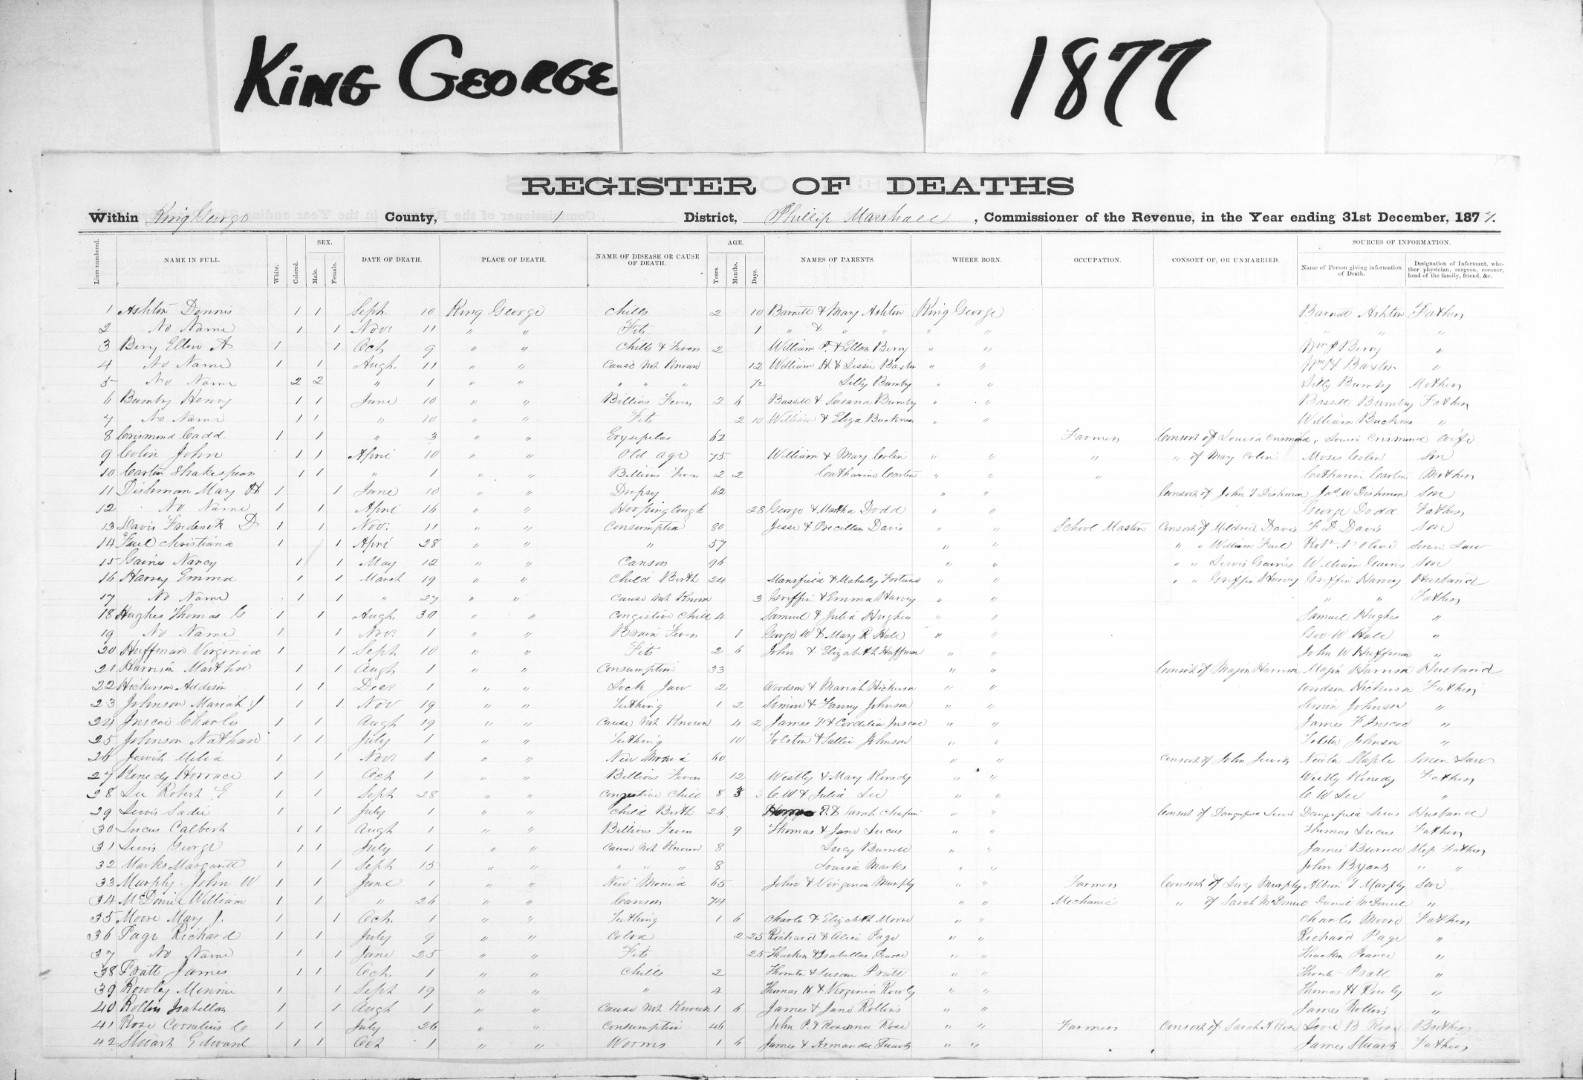 King George 1877
REGISTER OF DEATHS
Within King George County, 1 District, Phillip Marshall, Commissioner of the Revenue, in the Year ending 31st December, 1877.
Lines numbered. NAME IN FULL. White. Colored. SEX. Male. Female. DATE OF DEATH. PLACE OF DEATH. NAME OF DISEASE OR CAUSE OF DEATH. AGE. Years. Months. Days. NAMES OF PARENTS. WHERE BORN. OCCUPATION. CONSORT OF, OR UNMARRIED. SOURCES OF INFORMATION. Name of Person giving information of Death. Designation of Informant, whether physician, surgeon, coroner, head of the family, friend, &c.
1 Ashton Dennis 1 1 Sept 10 King George Chills 2 10 Barnett & Mary Ashton King George Barnett Ashton Father
2 No Name 1 1 Nov 11 " " Fits 1 " & " " " " " " "
3 Berry Ellen A 1 1 Oct 9 " " Chills & Fever 2 William P. & Ellen Berry " " Wm P Berry "
4 No Name 1 1 Augh 11 " " Cause Not Known 12 William H & " " Wm H "
5 No Name 2 2 " 1 " " " " " 12 Silly Bumby " " Silly Bumby Mother
6 Bumby Henry 1 1 June 10 " " Billius Fever 2 6 & Susana Bumby " " Bumby Father
7 No Name 1 1 " 10 " " Fits 2 10 William & Eliza " " William "
8 1 1 " 3 " " Erysiplas 62 Farmer Consort of Wife
9 Colin John 1 1 April 10 " " Old age 75 William & Mary Colin " " " " of Mary Colin Moses Colin Son
10 1 1 " 1 " " Billius Fever 2 2 Catharine " " " Catharine Mother
11 Dishman Mary 1 1 June 10 " " Dropsy 62 " " Consort of John T Dishman Jas W Dishman Son
12 No Name 1 1 April 16 " " Hooping Cough 28 George & Martha Dodd " " George Dodd Father
13 Davis Frederick D 1 1 Nov. 11 " " Consumption 80 Jesse & Davis " " School Master Consort of Mildred Davis F D Davis Son
14 Christiana 1 1 April 28 " " " 57 " " " " William Robt Sonin Law
15 Gaines Nancy 1 1 May 12 " " Canser 96 " " " " Lewis Gaines William Gaines Son
16 Harvy Emma 1 1 March 19 " " Child Birth 24 Mansfield & " " " " Griffin Harvy Griffin Harvy Husband
17 No Name 1 1 " 27 " " Cause Not Known 3 Griffin & Emma Harvy " " " " Father
18 Hughes Thomas 1 1 Augh 30 " " Congestive Child 4 Samuel & Julia Hughes " " Samuel Hughes "
19 No Name 1 1 Nov 1 " " Brain Fever 1 George W & Mary R Hall " " Geo W Hall "
20 Huffman Virginia 1 1 Sept 10 " " Fits 2 6 John & Elizabeth Huffman " " John W Huffman "
21 Harrison Martha 1 1 Augh 1 " " Consumption 33 " " Consort of Major Harrison Major Harrison Husband
22 Hickerson Addison 1 1 Decr 1 " " Lock Jaw 2 Woodson & Mariah Hickerson " " Woodson Hickerson Father
23 Johnson Mariah J 1 1 Nov 19 " " Tuthing 1 2 Simon & Fanny Johnson " " Simon Johnson "
24 Inscoe Charles 1 1 Augh 19 " " Cause Not Known 4 2 James F & Cordelia Inscoe " " James F Inscoe "
25 Johnson Nathan 1 1 July 1 " " Tuthing 10 Tolson & Sallie Johnson " " Johnson "
26 1 1 Nov 1 " " New Monia 60 " " Consort of John Staple Sonin Law
27 Kenedy Horrace 1 1 Oct 1 " " Billious Fever 12 Westly & Mary Kenedy " " Westly Kenedy Father
28 Lee Robert E 1 1 Sept 28 " " Congestive Child 8 3 C W & Julia Lee " " C W Lee "
29 Lewis Sadie 1 1 July 1 " " Child Birth 26 & Sarah " " Consort of Lewis Lewis Husband
30 Lucus Calbert 1 1 Augh 1 " " Billious Fever 9 Thomas & Jane Lucus " " Thomas Lucus Father
31 Lewis George 1 1 July 1 " " Cause Not Known 8 Lucy " " James Step Father
32 Marks Margarett 1 1 Sept 15 " " " " " 8 Louisa Marks " " John Bryant " "
33 Murphy John W 1 1 June 1 " " New Monia 65 John & Virginia Murphy " " Farmer Consort of Lucy Murphy Murphy Son
34 McDaniel William 1 1 " 26 " " Canser 74 " " Mechanic " of Sarah "
35 Moore Mary J. 1 1 Oct 1 " " Tuthing 1 6 Charles & Elizabeth Moore " " Charles Moore Father
36 Page Richard 1 1 July 9 " " 2 25 Richard & Alice Page " " Richard Page "
37 No Name 1 1 June 25 " " Fits 25 & Isabella " " "
38 Pratt James 1 1 Oct 1 " " Chills 2 & Susan Pratt " " Pratt "
39 Rowley Minnie 1 1 Sept 19 " " " 4 Thomas H & Virginia Rowley " " Thomas H Rowley "
40 Rollins Isabella 1 1 Augh 1 " " Cause Not Known 1 6 James & Jane Rollins " " James Rollins "
41 Rose Cornelius 1 1 July 26 " " Consumption 46 John P. & Rose " " Farmer Consort of Sarah A Rose B Rose Brother
42 Stuart Edward 1 1 Oct 1 " " Worms 1 6 James & Armanda Stuart " " James Stuart Father